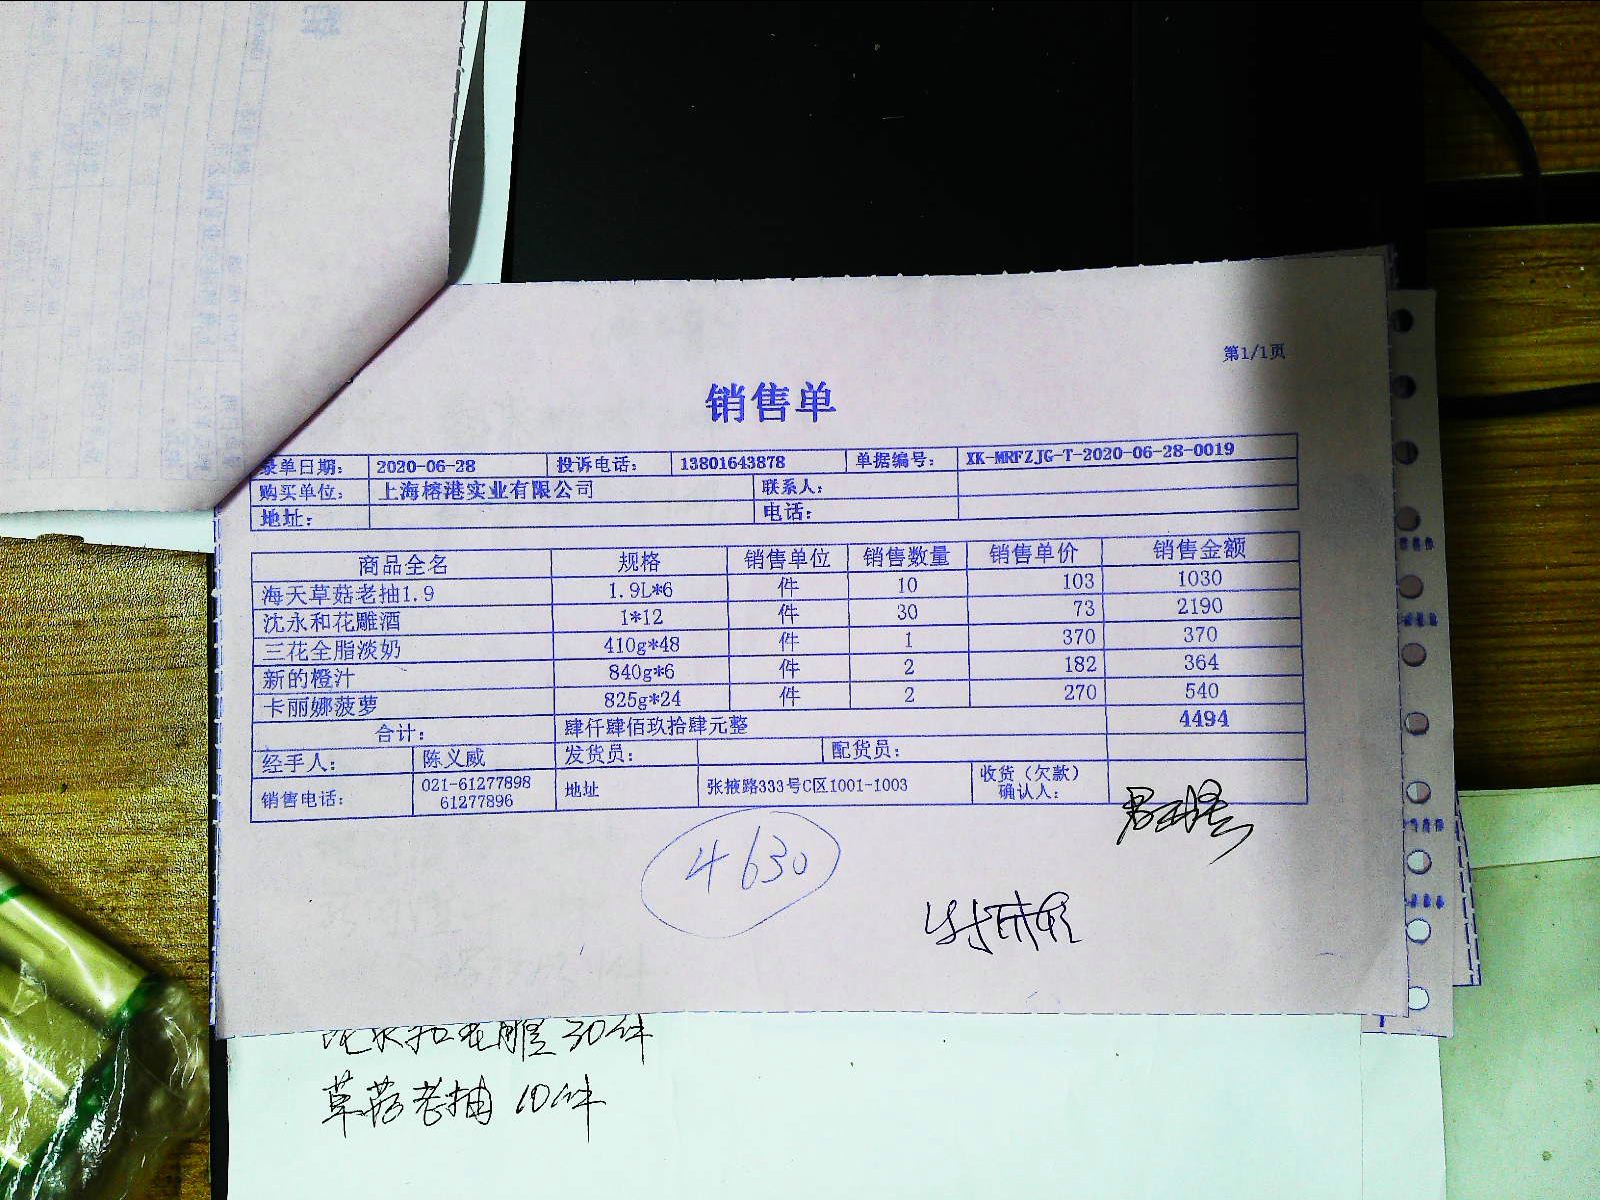 第1/1页
销售单
录单日期： 2020-06-28 投诉电话： 13801643878 单据编号： XK-MRFZJG-T-2020-06-28-0019
购买单位： 上海榕港实业有限公司 联系人：
地址： 电话：
商品全名 规格 销售单位 销售数量 销售单价 销售金额
海天草菇老抽1.9 1.9L*6 件 10 103 1030
沈永和花雕酒 1*12 件 30 73 2190
三花全脂淡奶 410g*48 件 1 370 370
新的橙汁 840g*6 件 2 182 364
卡丽娜菠萝 825g*24 件 2 270 540
合计： 肆仟肆佰玖拾肆元整 4494
经手人： 陈义威 发货员： 配货员：
销售电话： 021-61277898 61277896 地址 张掖路333号C区1001-1003 收货（欠款）确认人：
4630
沈永和花雕 30件
草菇老抽 10件